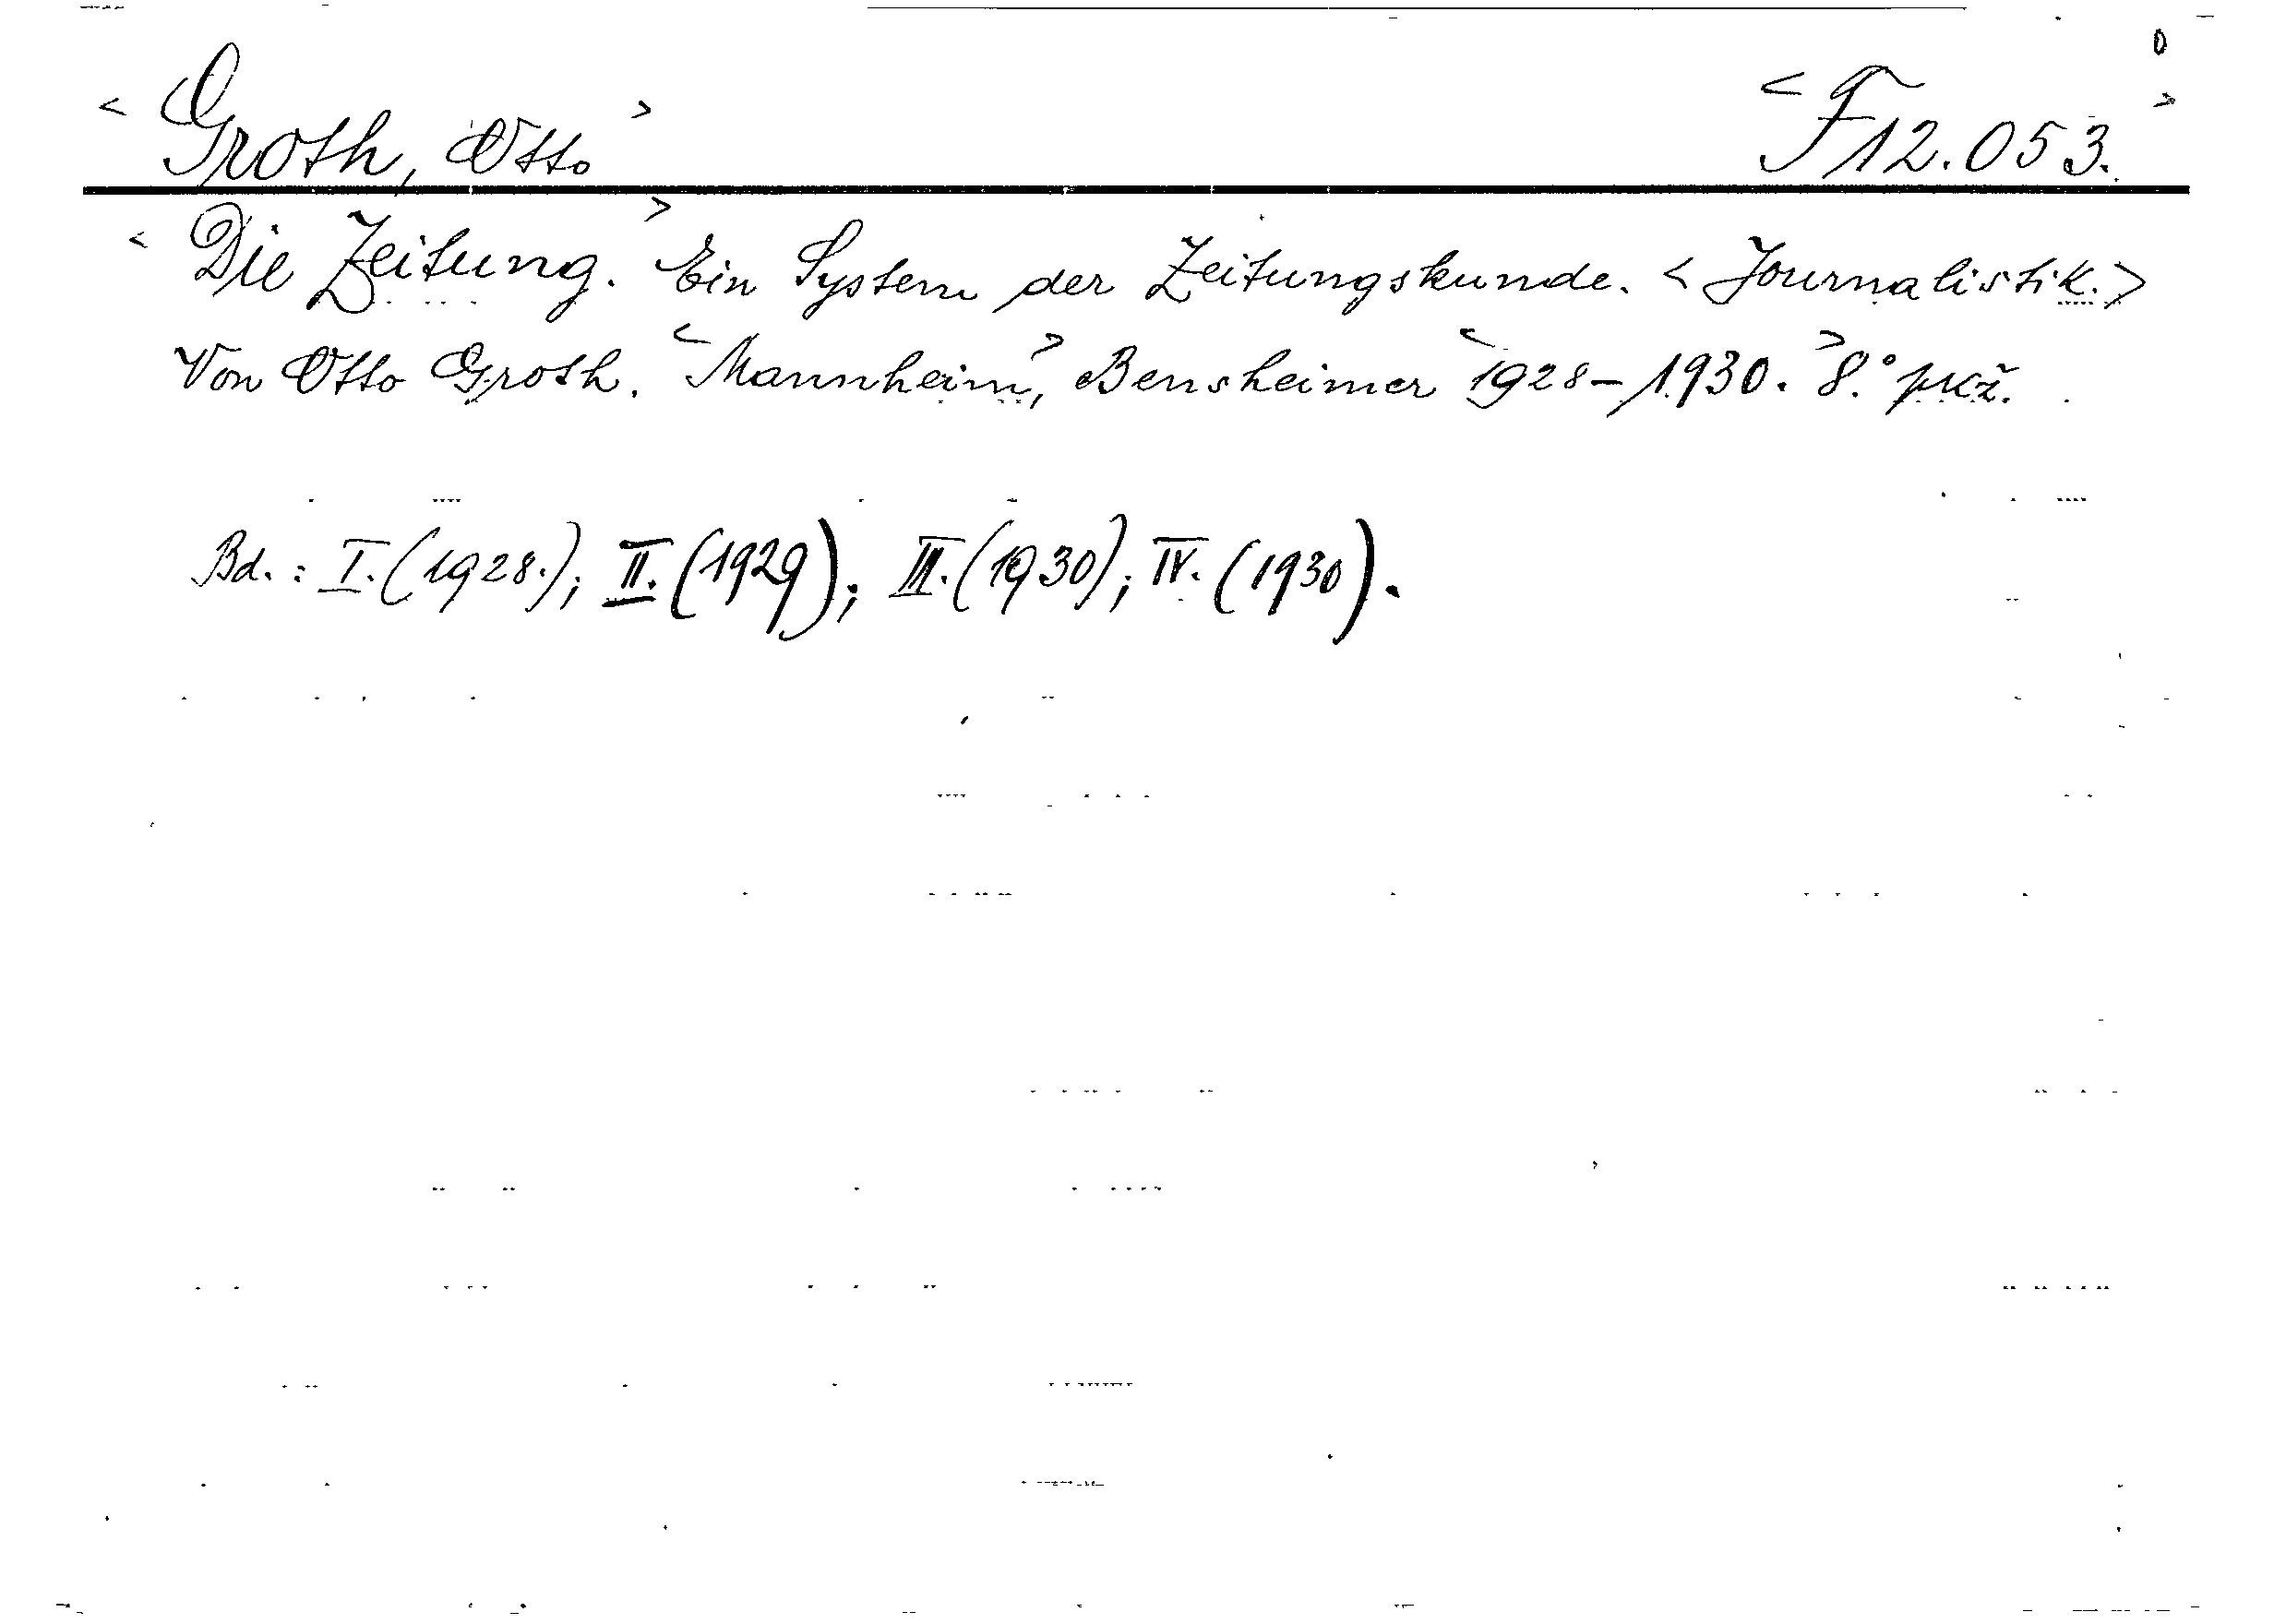 < Groth, Otto > < F 12.053. >
< Die Zeitung. > Ein System der Zeitungskunde. < Journalistik. >
Von Otto Groth. < Mannheim >, Bensheimer < 1928-1930. > 8.° pKž.
Bd.: I. (1928.); II. (1929); III. (1930); IV. (1930).